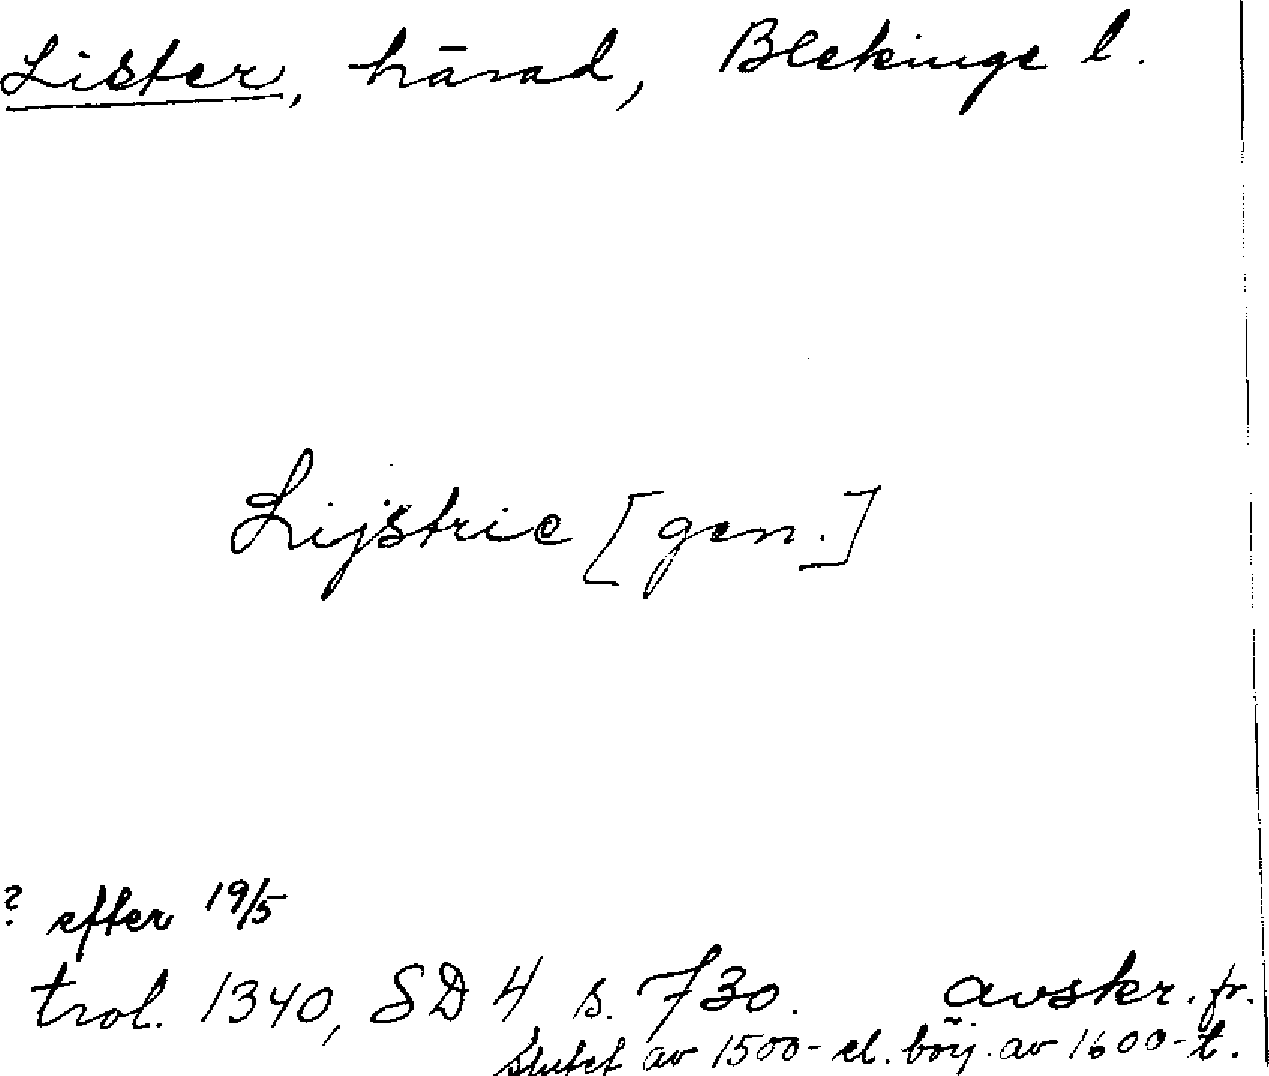 Lister, härad, Blekinge l.
Lijstrie [gen.]
? efter 19/5
trol. 1340, SD 4 s. 730. avskr. fr.
slutet av 1500- el. börj. av 1600-t.